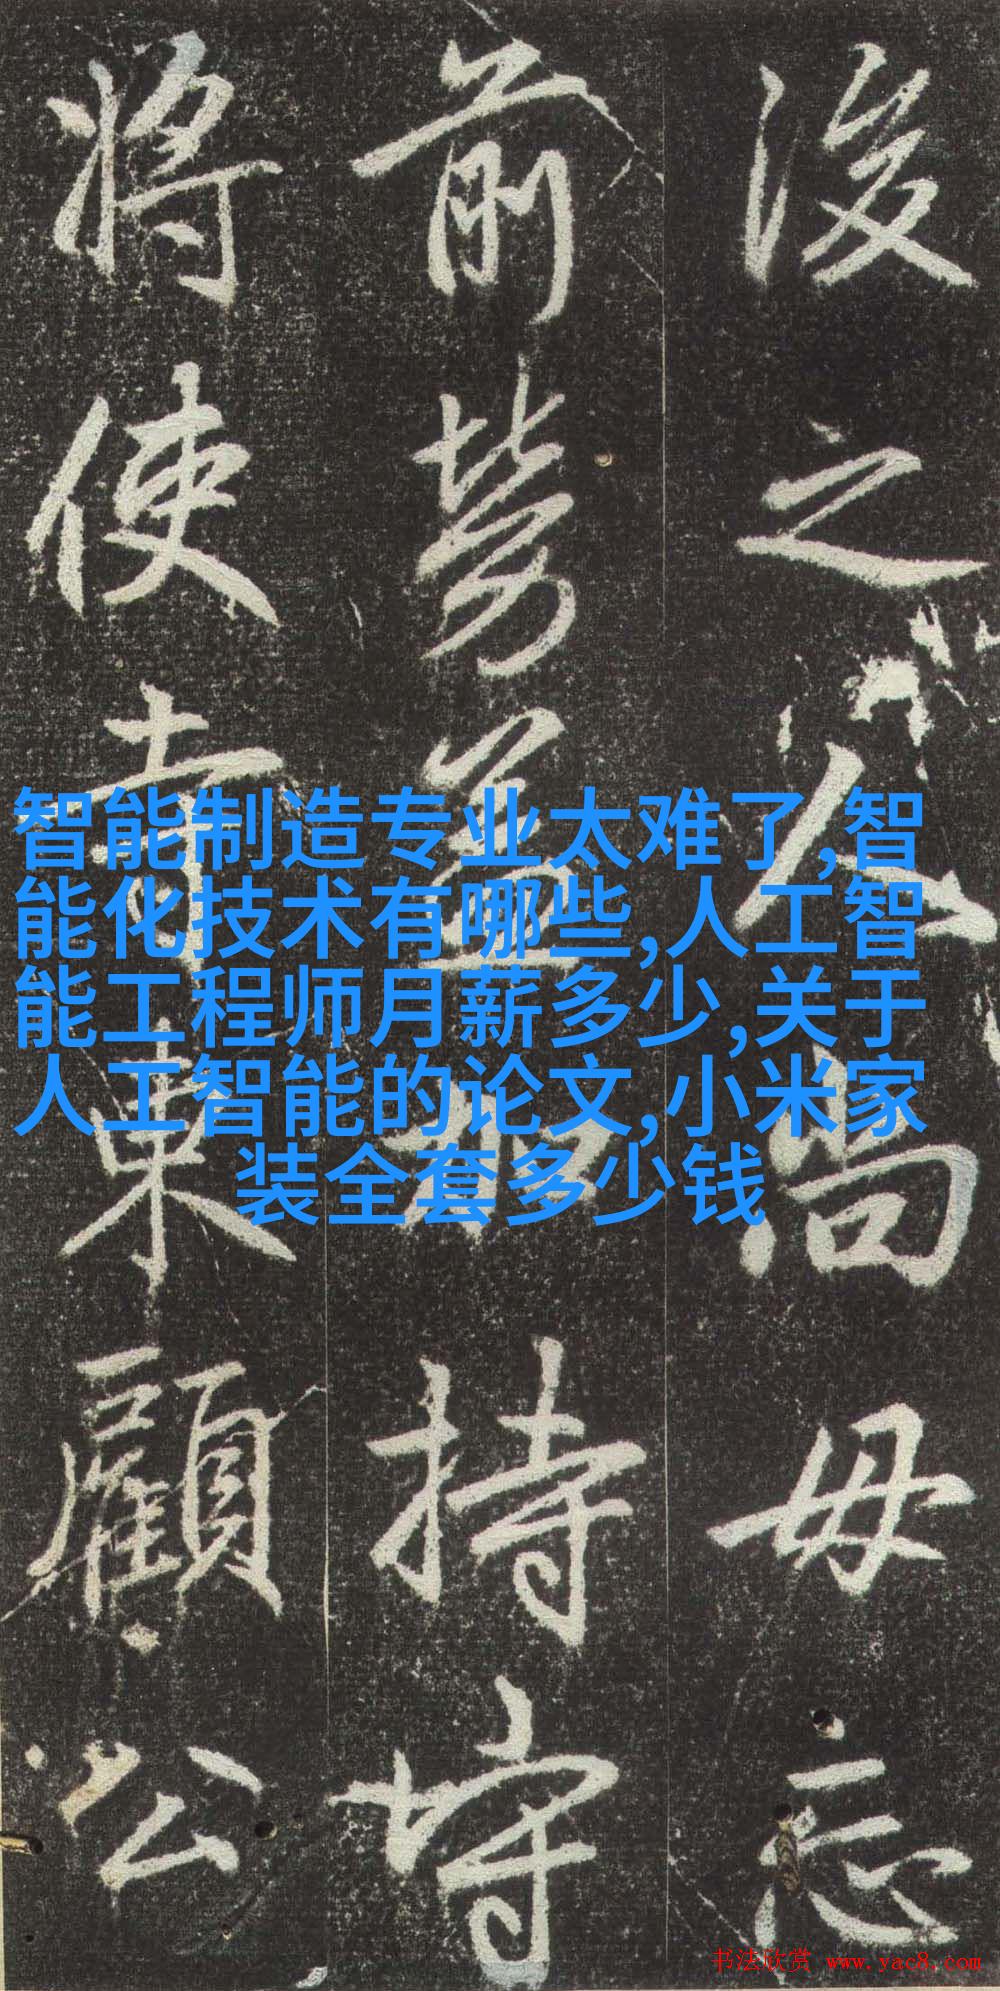 後之人尚毋忘
前勞益加持守
将使東顧公
智能制造专业太难了,智
能化技术有哪些,人工智
能工程师月薪多少,关于
人工智能的论文,小米家
装全套多少钱
书法欣赏 www.yac8.com